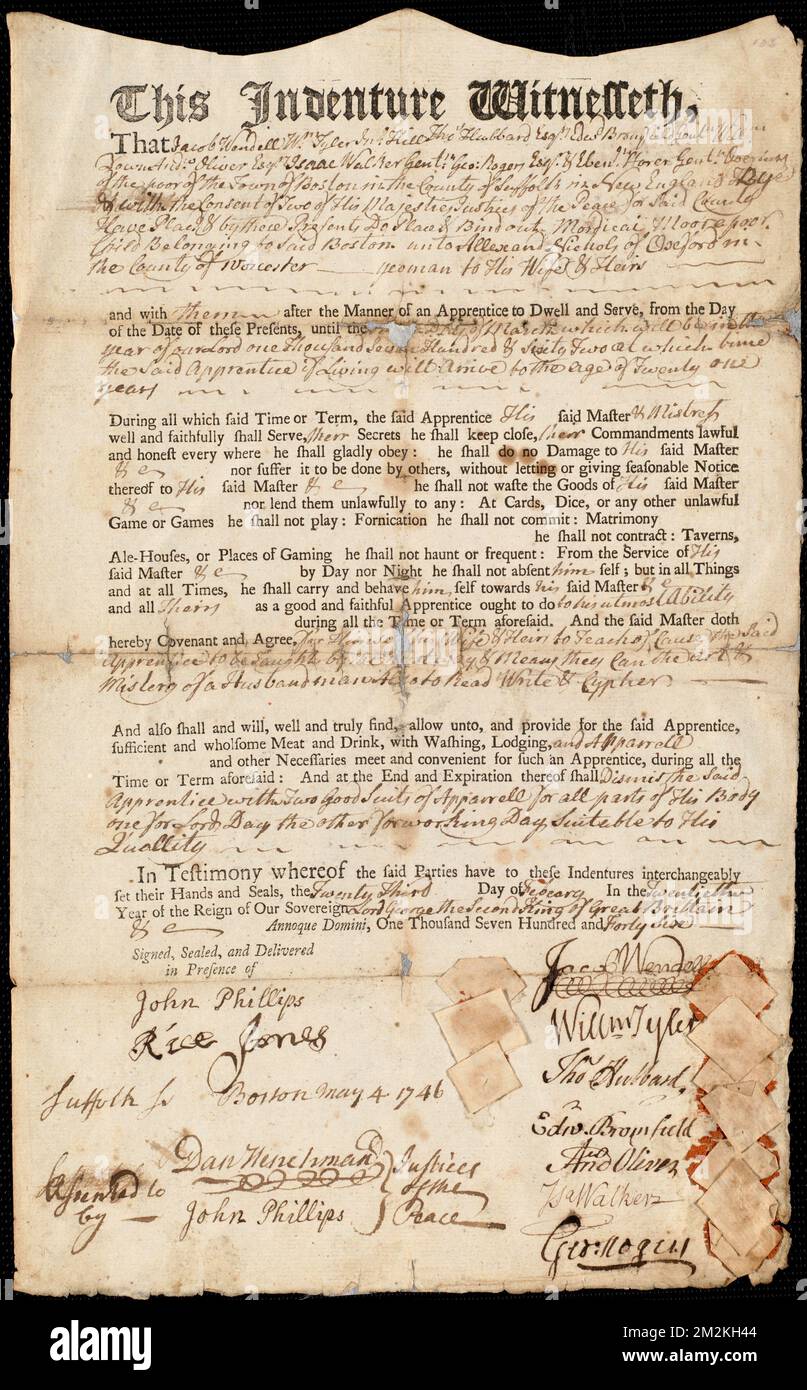 This Indenture Witnesseth,
That Jacob Wendell Wm Tyler Jno Hill Thos Hubbard Esqrs Edwd
Andw Oliver Esqr Isaac Walker Gentn Geo: Rogers Esqr & Ebenr Storer Gentn Overseers
of the poor of the Town of Boston in the County of Suffolk in New England
& with the Consent of Two of His Majesties Justices of the Peace for Said County
Have Placd & by these Presents Do Place & Bind out Mordicai Moore a poor
Child Belonging to Said Boston unto Allexand Nichols of Oxeford in
the County of Worcester — yeoman to His Wife & Heirs
and with them after the Manner of an Apprentice to Dwell and Serve, from the Day
of the Date of these Presents, until the Day of March which will be in the
year of our Lord one Thousand Seven Hundred & sixty Two at which time
the Said Apprentice if Living will Arrive to the age of Twenty one
years
During all which said Time or Term, the said Apprentice His said Master & Mistress
well and faithfully shall Serve, their Secrets he shall keep close, their Commandments lawful
and honest every where he shall gladly obey: he shall do no Damage to His said Master
& c nor suffer it to be done by others, without letting or giving seasonable Notice
thereof to His said Master & c he shall not waste the Goods of His said Master
& c nor lend them unlawfully to any: At Cards, Dice, or any other unlawful
Game or Games he shall not play: Fornication he shall not commit: Matrimony
he shall not contract: Taverns,
Ale-Houses, or Places of Gaming he shall not haunt or frequent: From the Service of His
said Master & c by Day nor Night he shall not absent him self; but in all Things
and at all Times, he shall carry and behave him self towards his said Master & c
and all Theirs as a good and faithful Apprentice ought to do to his utmost Ability
during all the Time or Term aforesaid. And the said Master doth
hereby Covenant and Agree, for Himself His Wife & Heirs to Teach or Cause the Said
Apprentice to be Taught by & Means they Can the Art &
Mistery of a Husbandman Also to Read Write & Cypher
And also shall and will, well and truly find, allow unto, and provide for the said Apprentice,
sufficient and wholsome Meat and Drink, with Washing, Lodging, and Apparrell
and other Necessaries meet and convenient for such an Apprentice, during all the
Time or Term aforesaid: And at the End and Expiration thereof shall Dismis the Said
Apprentice with Two Good Suits of Apparrell for all parts of His Body
one for Lords Day the other for working Day Suitable to His
Quallity
In Testimony whereof the said Parties have to these Indentures interchangeably
set their Hands and Seals, the Twenty Third Day of In the Twentieth
Year of the Reign of Our Sovereign Lord George the Second King of Great Brittain
& c Annoque Domini, One Thousand Seven Hundred and Forty Six
Signed, Sealed, and Delivered
in Presence of
John Phillips
Rice Jones
Suffolk ss Boston May 4 1746
Assented to
by
Dan Henchman
John Phillips
Justices
of the
Peace
Jacob Wendell
Willm Tyler
Thos Hubbard
Edw. Bromfield
And Oliver
Isa Walker
Geo: Rogers
alamy
Image ID: 2M2KH44
www.alamy.com